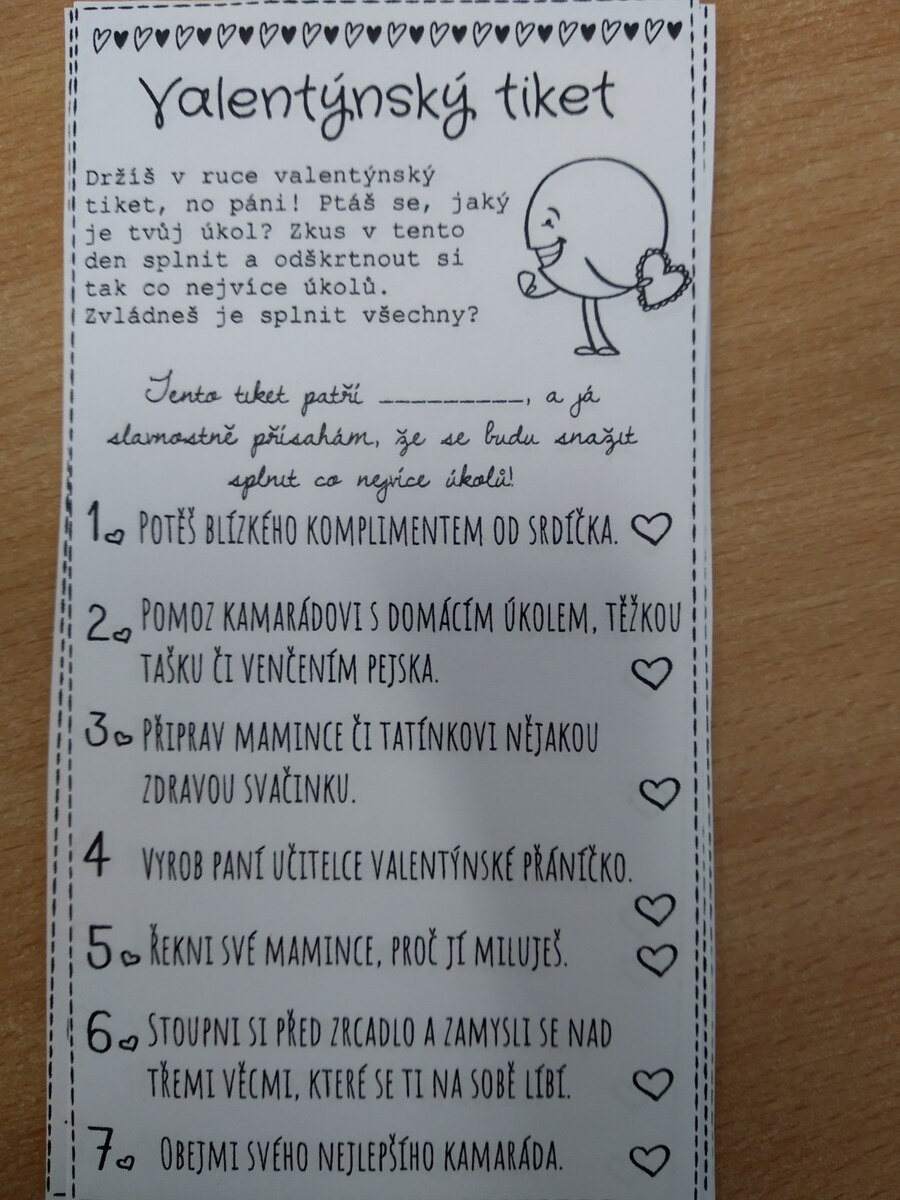 Valentýnský tiket
Držíš v ruce valentýnský
tiket, no páni! Ptáš se, jaký
je tvůj úkol? Zkus v tento
den splnit a odškrtnout si
tak co nejvíce úkolů.
Zvládneš je splnit všechny?
Tento tiket patří _________, a já
slavnostně přísahám, že se budu snažit
splnit co nejvíce úkolů!
1. POTĚŠ BLÍZKÉHO KOMPLIMENTEM OD SRDÍČKA.
2. POMOZ KAMARÁDOVI S DOMÁCÍM ÚKOLEM, TĚŽKOU
TAŠKU ČI VENČENÍM PEJSKA.
3. PŘIPRAV MAMINCE ČI TATÍNKOVI NĚJAKOU
ZDRAVOU SVAČINKU.
4 VYROB PANÍ UČITELCE VALENTÝNSKÉ PŘÁNÍČKO.
5. ŘEKNI SVÉ MAMINCE, PROČ JÍ MILUJEŠ.
6. STOUPNI SI PŘED ZRCADLO A ZAMYSLI SE NAD
TŘEMI VĚCMI, KTERÉ SE TI NA SOBĚ LÍBÍ.
7. OBEJMI SVÉHO NEJLEPŠÍHO KAMARÁDA.